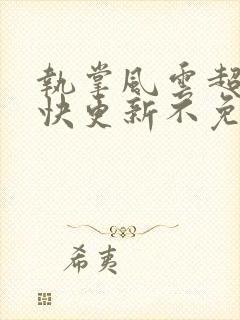 執掌風雲超
快更新不免
希夷